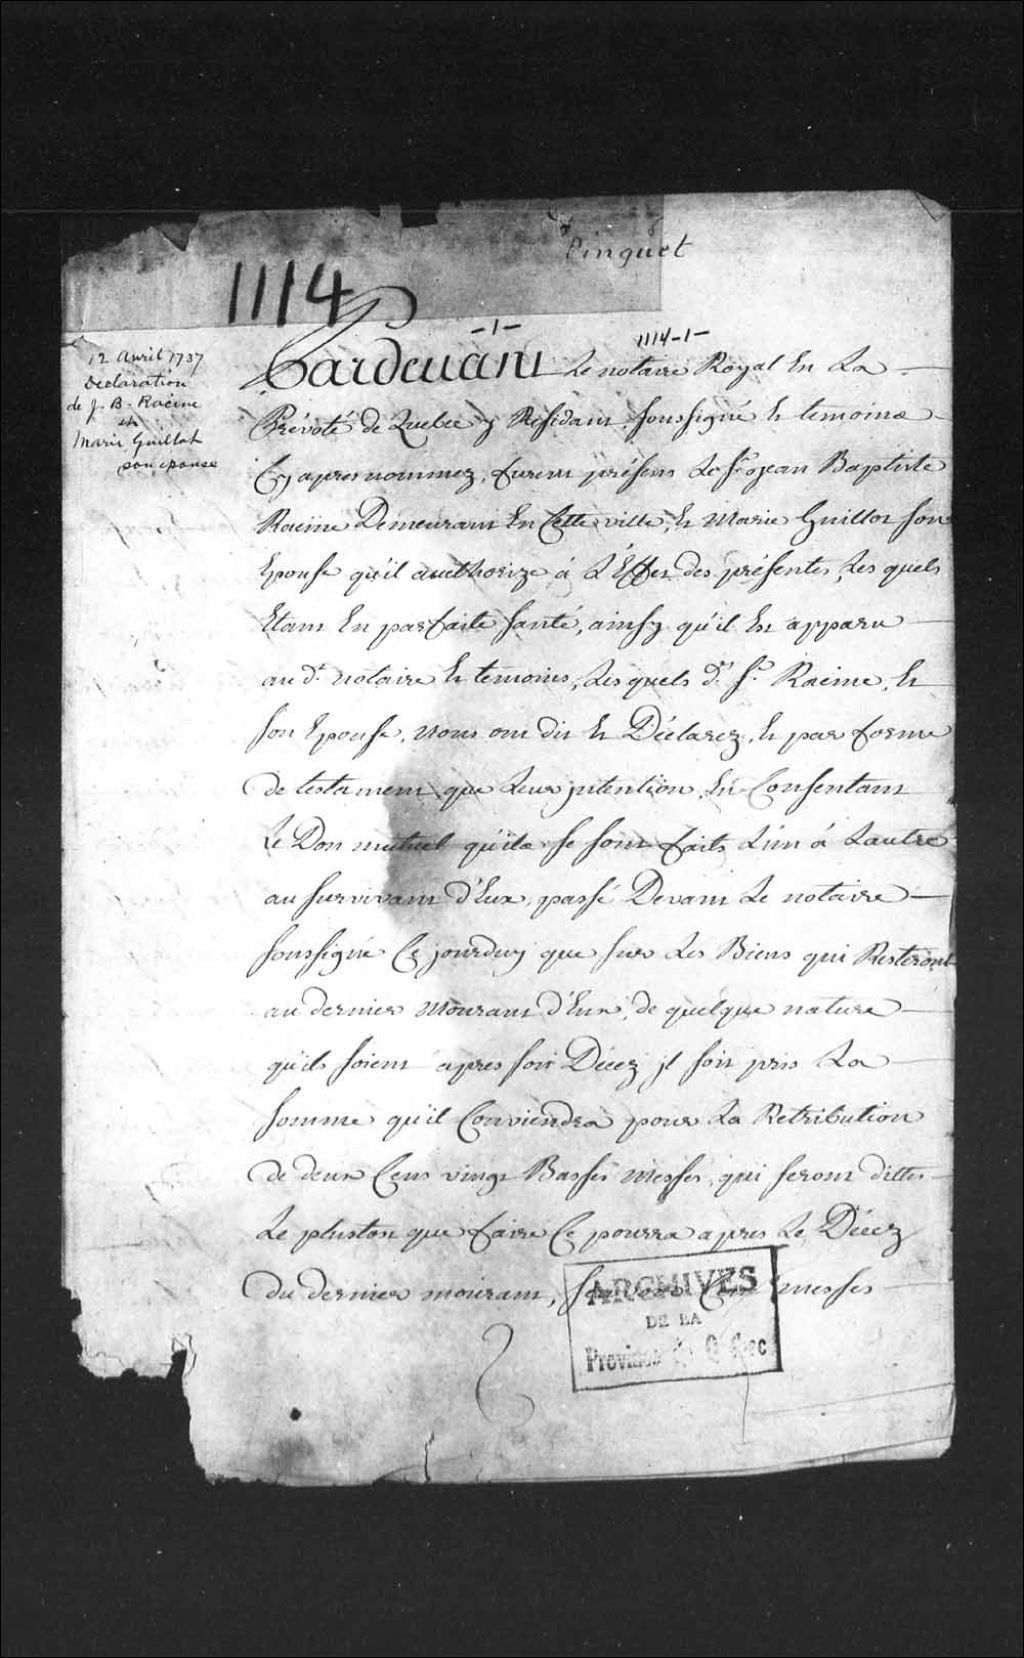 Pinguet
1114
-1-
1114-1-
12 avril 1737
Déclaration
de J. B. Racine
et
Marie Guillot
son épouse
Pardevant Le notaire Royal En La
Prévoté de Quebec y Residant soussigné Et temoins
Cy apres nommez, furent présens Le Sr jean Baptiste
Racine Demeurant En Cette ville, Et Marie Guillot son
Epouse qu'il aucthorize à L'Effet des présentes, Les quels
Etant En parfaite santé, ainsy qu'il Est apparu
au d. notaire Et temoins, Lesquels d. Sr. Racine, Et
son Epouse, nous ont dit Et Déclarez, Et par forme
de testament que Leur jntention, En Consentant
Le Don mutuel qu'ils se sont faits L'un à Lautre
au survivant d'Eux, passé Devant Le notaire
soussigné Ce jourduy que sur Les Biens qui Resteront
au dernier Mourant d'Eux, de quelque nature
qu'ils soient apres son Décez jl soit pris La
somme qu'il Conviendra pour La Retribution
de deux Cens vingt Basses Messes, qui seront dittes
Le plustost que faire Ce pourra apres Le Décez
du dernier mourant, Cent messes
ARCHIVES
DE LA
Province de Québec